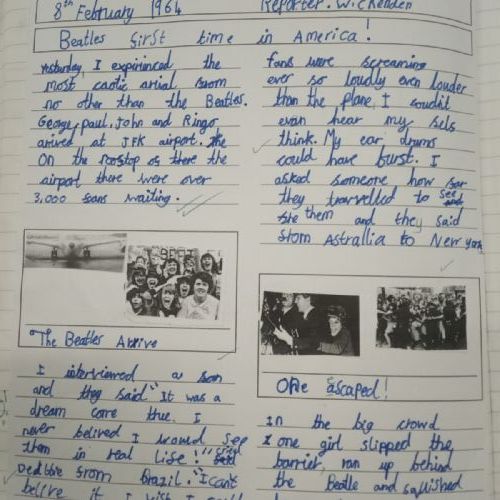 8th February 1964
Reporter. Wickenden
Beatles first time in America!
Yesterday, I expirienced the
most caotic arial from
no other than the Beatles.
George, paul, John and Ringo
arived at JFK airport. The
On the rooftop of there the
airport there were over
3,000 fans waiting.
The Beatles Arrive
I interviewed a fan
and they said "It was a
dream come true. I
never belived I would see
them in real life!" cried
Debbie from Brazil. "I cant
belive it I wish I could
fans were screaming
ever so loudly even louder
than the plane, I couldit
evan hear my sels
think. My ear drums
could have burst. I
asked someone how far
they travelled to see
them and they said
from Astrallia to New york
One ascaped!
In the big crowd
one girl slipped the
barrier, ran up behind
the Beatle and squished